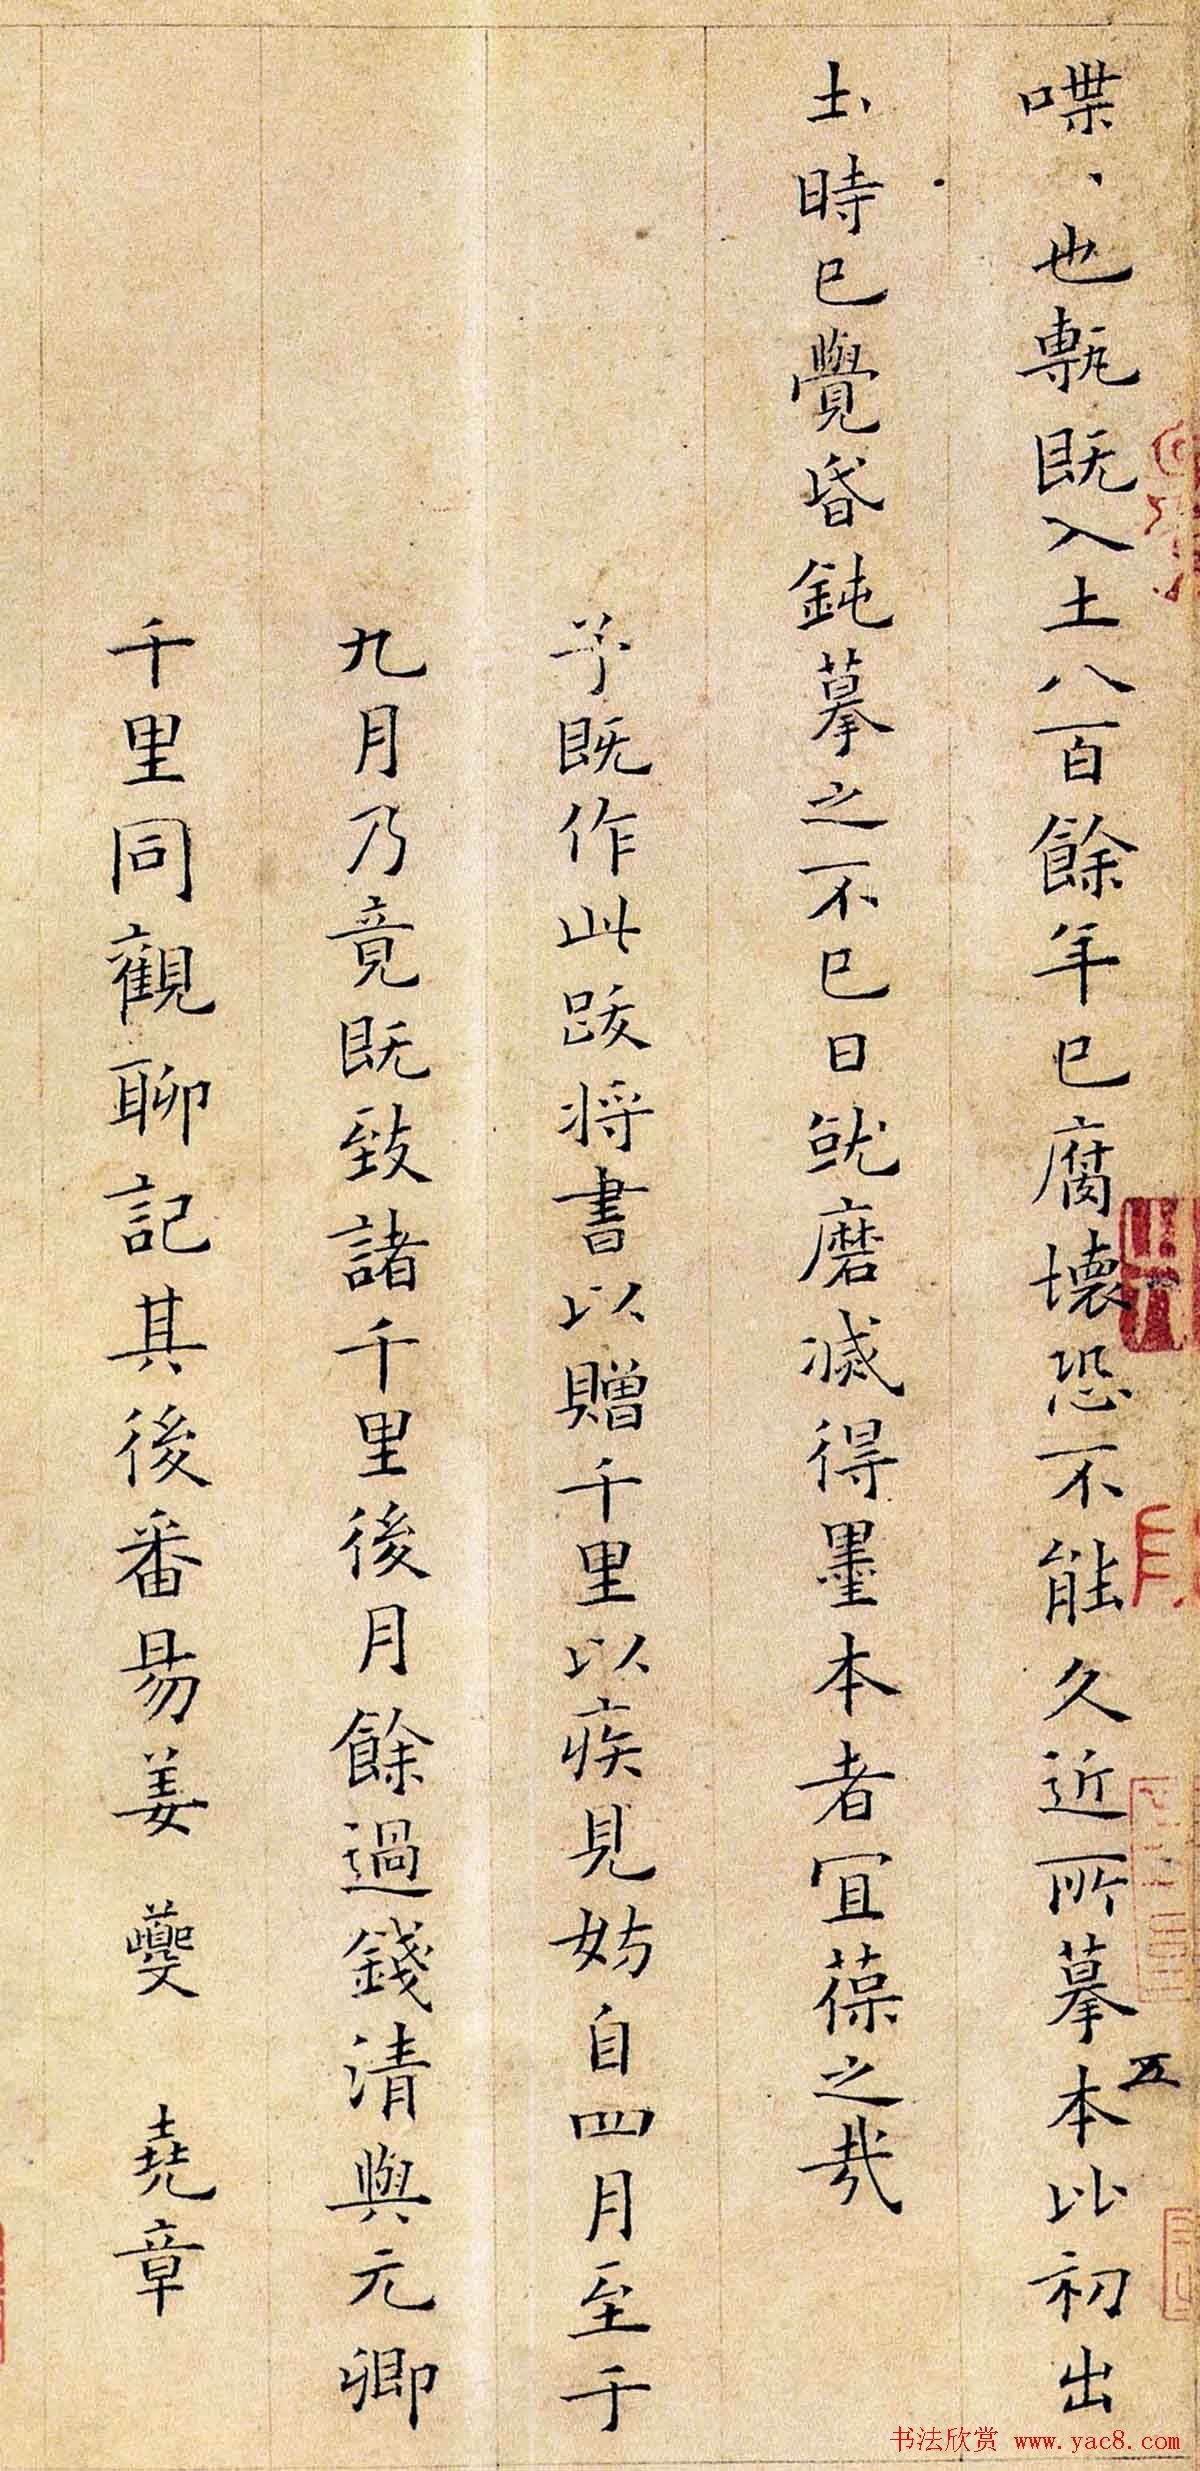 喋、也甎既入土八百餘年已腐壞恐不能久近所摹本比初出
五
土時已覺昏鈍摹之不已日就磨滅得墨本者宜葆之哉
予既作此跋将書以贈千里以疾見妨自四月至于
九月乃竟既致諸千里後月餘過錢清與元卿
千里同觀聊記其後番昜姜夔 堯章
书法欣赏 www.yac8.com